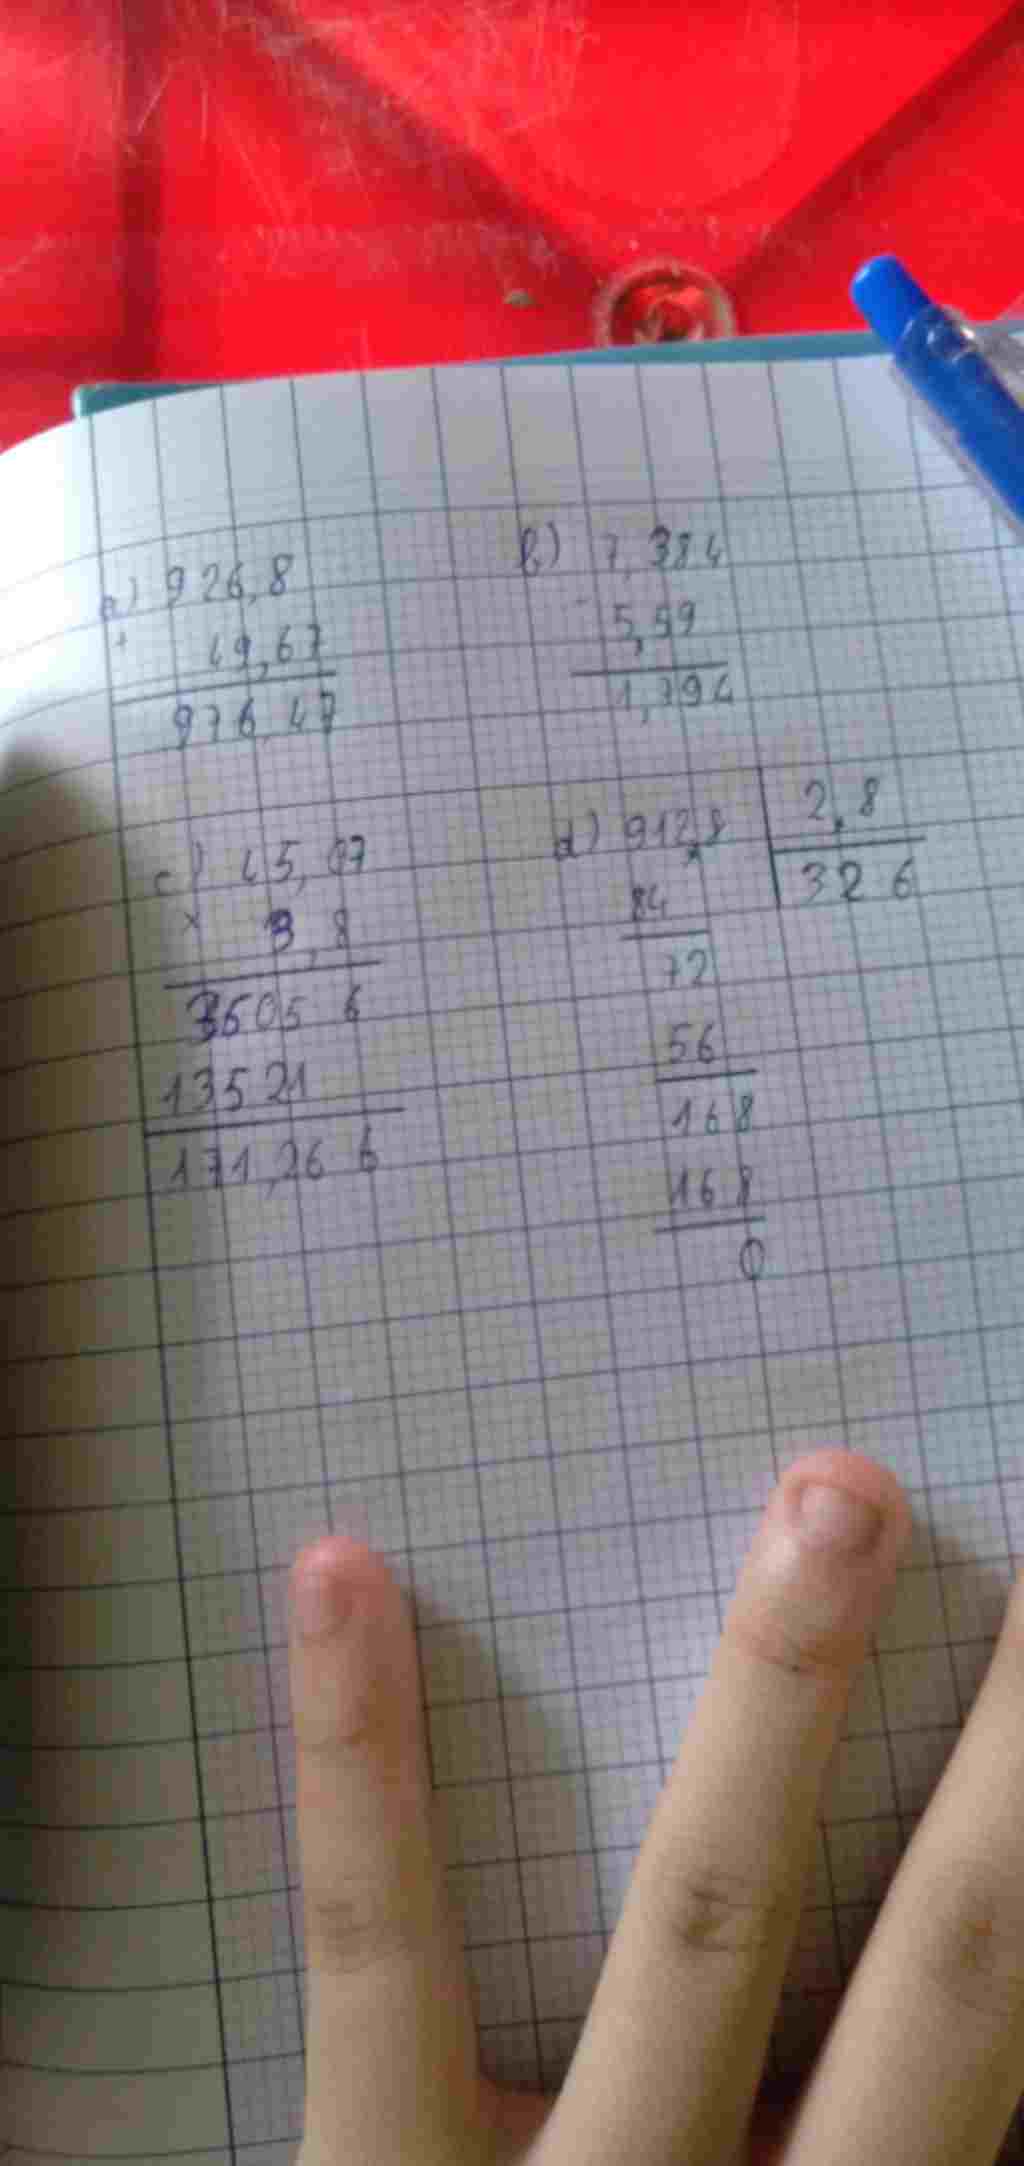 a) 926,8
+ 49,67
976,47
b) 7,384
- 5,59
1,794
c) 45,07
x 3,8
36056
13521
171,266
d) 912,8 2,8
84 326
72
56
168
168
0